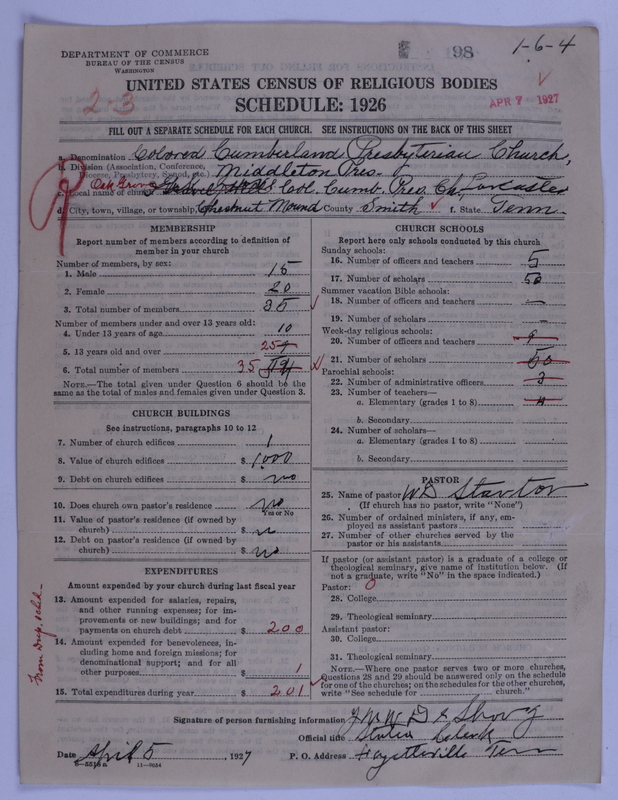 DEPARTMENT OF COMMERCE
BUREAU OF THE CENSUS
WASHINGTON
198
1-6-4
UNITED STATES CENSUS OF RELIGIOUS BODIES
2-3
SCHEDULE: 1926
APR 7 1927
FILL OUT A SEPARATE SCHEDULE FOR EACH CHURCH. SEE INSTRUCTIONS ON THE BACK OF THIS SHEET
a. Denomination Colored Cumberland Presbyterian Church,
b. Division (Association, Conference, Diocese, Presbytery, Synod, etc.) Middleton Pres.
c. Local name of church Oak Grove Col. Cumb. Pres. Ch, Lancaster
d. City, town, village, or township, Chestnut Mound County Smith f. State Tenn.
MEMBERSHIP
Report number of members according to definition of
member in your church
Number of members, by sex:
1. Male 15
2. Female 20
3. Total number of members 35
Number of members under and over 13 years old:
4. Under 13 years of age 10
5. 13 years old and over 25
6. Total number of members 35
NOTE.—The total given under Question 6 should be the
same as the total of males and females given under Question 3.
CHURCH BUILDINGS
See instructions, paragraphs 10 to 12
7. Number of church edifices 1
8. Value of church edifices $ 1,000
9. Debt on church edifices $ no
10. Does church own pastor's residence no
Yes or No
11. Value of pastor's residence (if owned by
church) $ n
12. Debt on pastor's residence (if owned by
church) $ no
EXPENDITURES
Amount expended by your church during last fiscal year
13. Amount expended for salaries, repairs,
and other running expenses; for im-
provements or new buildings; and for
payments on church debt $ 200
14. Amount expended for benevolences, in-
cluding home and foreign missions; for
denominational support; and for all
other purposes $ 1
15. Total expenditures during year $ 201
From Dup. sched.
CHURCH SCHOOLS
Report here only schools conducted by this church
Sunday schools:
16. Number of officers and teachers 5
17. Number of scholars 50
Summer vacation Bible schools:
18. Number of officers and teachers —
19. Number of scholars —
Week-day religious schools:
20. Number of officers and teachers
21. Number of scholars 50
Parochial schools:
22. Number of administrative officers 3
23. Number of teachers—
a. Elementary (grades 1 to 8)
b. Secondary
24. Number of scholars—
a. Elementary (grades 1 to 8)
b. Secondary
PASTOR
25. Name of pastor W D
(If church has no pastor, write "None")
26. Number of ordained ministers, if any, em-
ployed as assistant pastors
27. Number of other churches served by the
pastor or his assistants
If pastor (or assistant pastor) is a graduate of a college or
theological seminary, give name of institution below. (If
not a graduate, write "No" in the space indicated.)
Pastor: 0
28. College
29. Theological seminary
Assistant pastor:
30. College
31. Theological seminary
NOTE.—Where one pastor serves two or more churches,
Questions 28 and 29 should be answered only on the schedule
for one of the churches; on the schedules for the other churches,
write "See schedule for church."
Signature of person furnishing information
Official title Stated Clerk
Date April 5, 1927 P. O. Address Fayetteville Tenn
8—5518a 11—9034